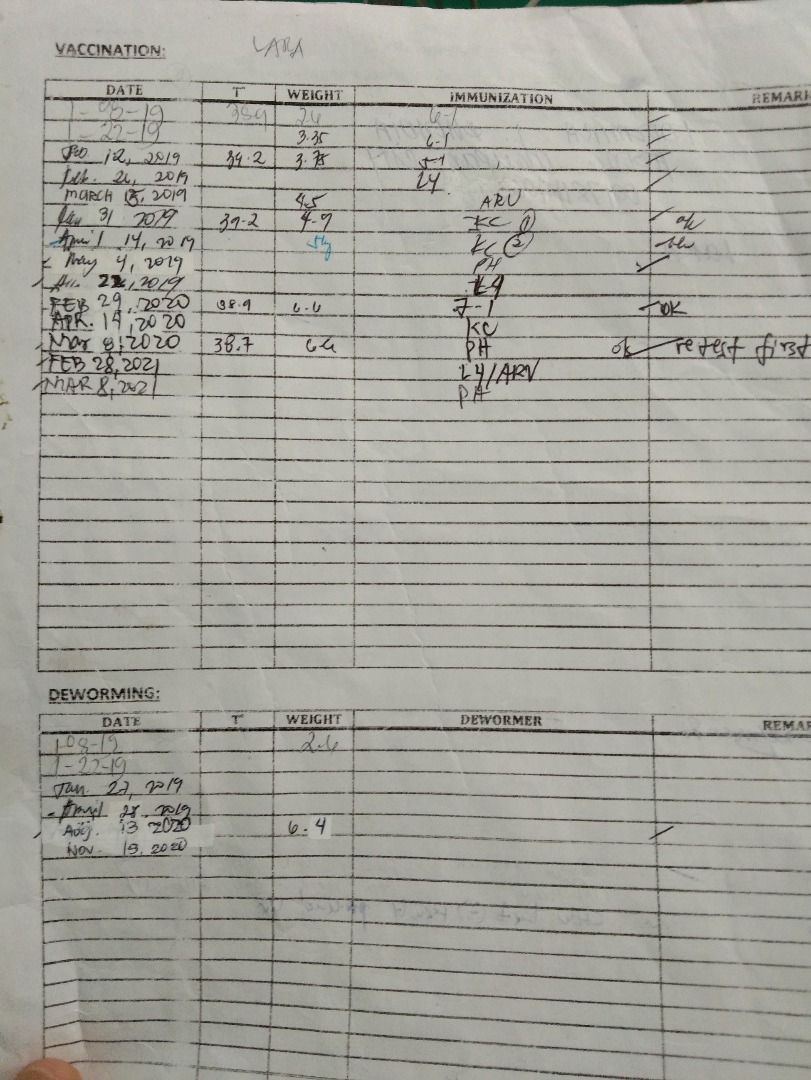 VACCINATION: LARA
DATE T WEIGHT IMMUNIZATION REMAR
1-08-19 38.9 2.6 6-1
1-22-19 3.35 6-1
Feb 12, 2019 39.2 3.75 5-1
Feb. 26, 2019 L4
MARCH 2019 4.5 ARV
31 2019 39.2 4.9 KC 1 ok
April 14, 2019 KC 2
May 4, 2019 PH
22, 2019 L4
FEB 29, 2020 38.9 6.6 7-1 OK
APR. 14, 2020 KC
Mar 8, 2020 38.7 6.6 PH ok retest first
FEB 28, 2021 L4/ARV
MAR 8, 2021 PH
DEWORMING:
DATE T WEIGHT DEWORMER REMAR
1-08-19 2.6
1-22-19
Jan. 27, 2019
April 28, 2019
Aug. 13 2020 6.4
Nov. 19, 2020